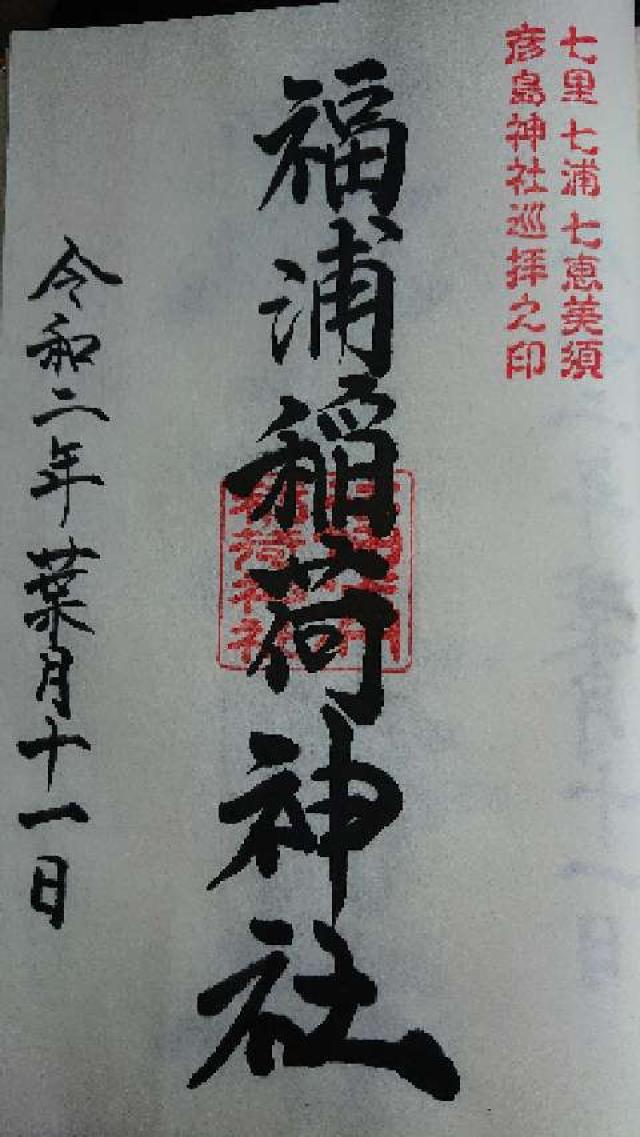 七里七浦七恵美須
彦島神社巡拝之印
福浦稲荷神社
令和二年葉月十一日